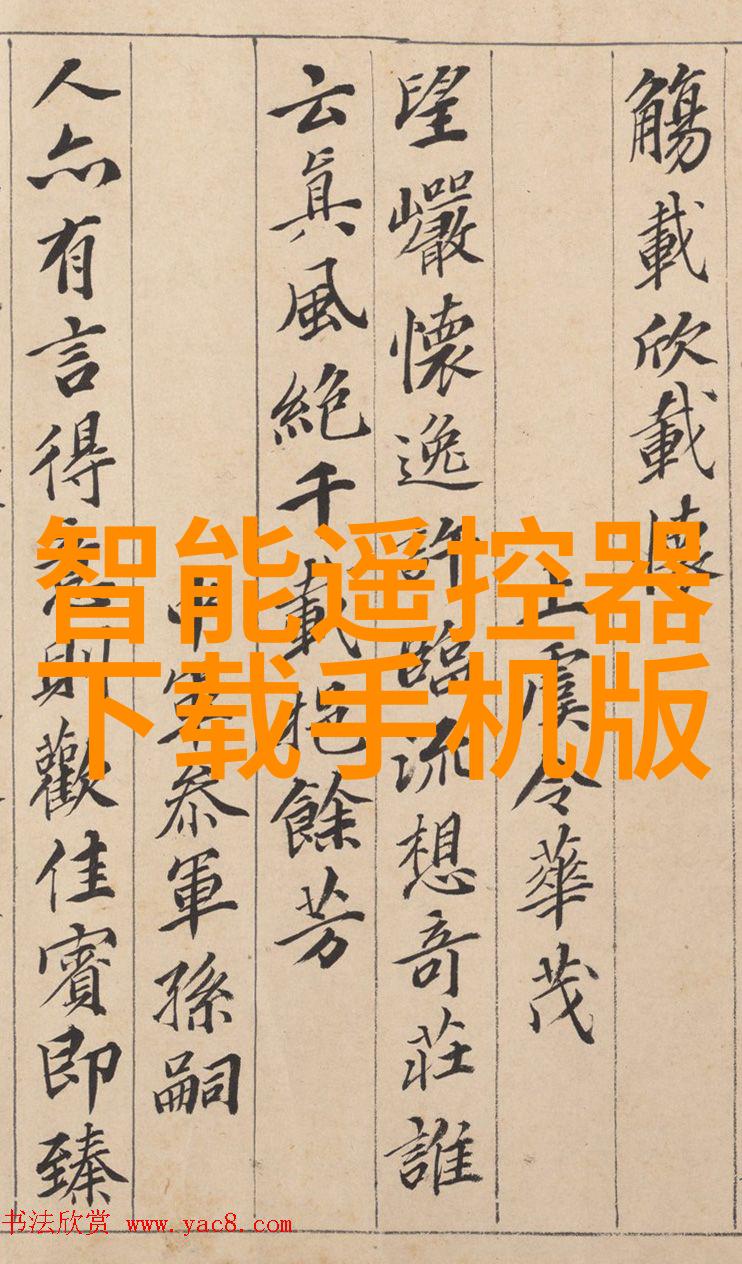 觴載欣載懷
上虞令華茂
望巖懷逸許臨流想奇莊誰
云眞風絶千載挹餘芳
中軍叅軍孫嗣
人亦有言得意則歡佳賓即臻
智能遥控器
下载手机版
书法欣赏 www.yac8.com